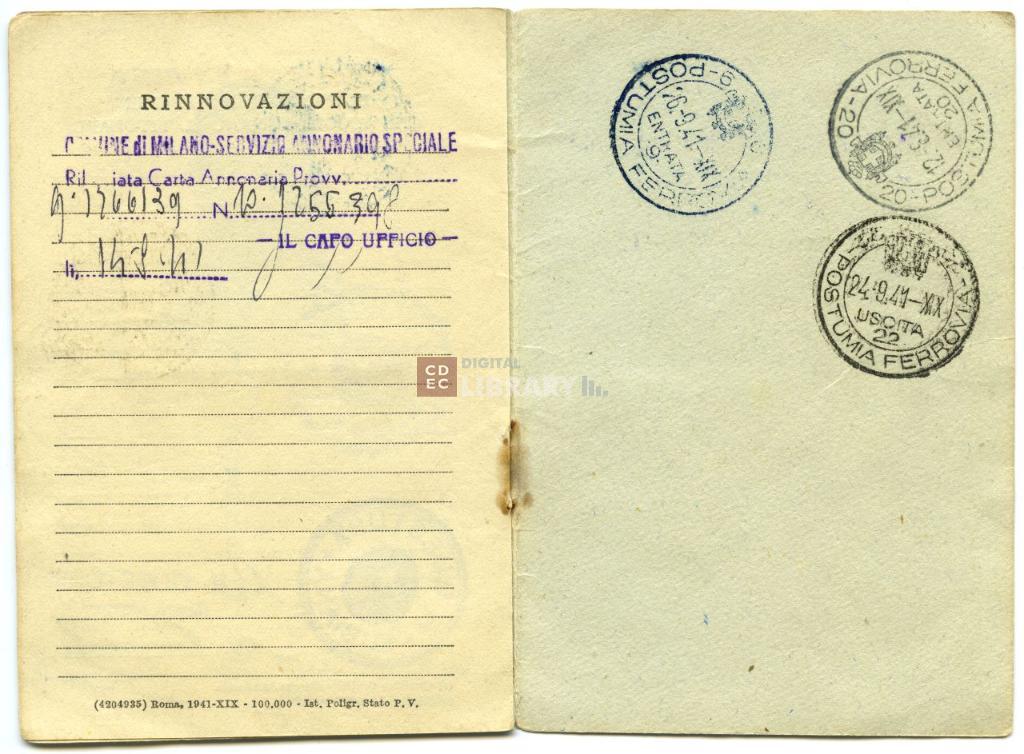 RINNOVAZIONI
COMUNE di MILANO-SERVIZIO ANNONARIO SPECIALE
Ril iata Carta Annonaria Provv.
g. 1766139 N. 1255398
— IL CAPO UFFICIO —
lì,
(4204935) Roma, 1941-XIX - 100.000 - Ist. Poligr. Stato P. V.
CDEC
DIGITAL
LIBRARY
9-POSTUMIA FERROVIA
26·9·41-XIX
ENTRATA
9
20-POSTUMIA FERROVIA-20
12·9·41-XIX
ENTRATA
20
24·9·41-XIX
USCITA
22
-POSTUMIA FERROVIA-